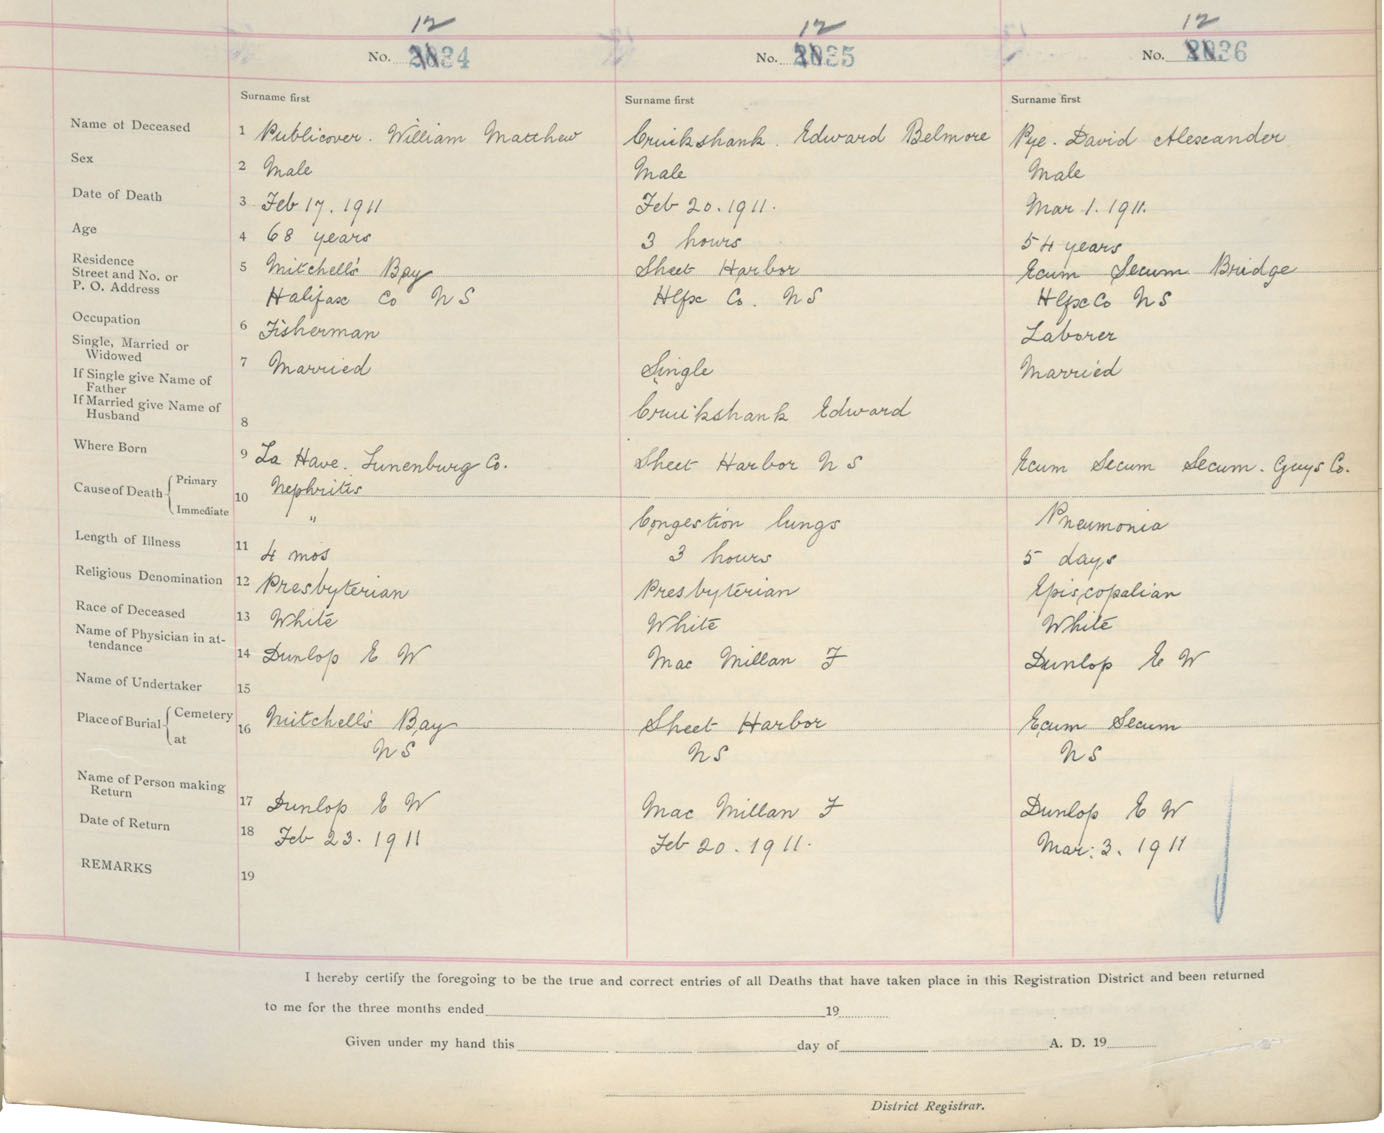 12 12 12
No. 2034 No. 2035 No. 2036
Surname first Surname first Surname first
Name of Deceased 1 Publicover. William Matthew Cruikshank. Edward Belmore Pye. David Alexander
Sex 2 Male Male Male
Date of Death 3 Feb 17. 1911 Feb 20. 1911. Mar 1. 1911.
Age 4 68 years 3 hours 54 years
Residence
Street and No. or 5 Mitchell's Bay Sheet Harbor Ecum Secum Bridge
P. O. Address Halifax Co N S Hlfx Co. N S Hlfx Co N S
Occupation 6 Fisherman Laborer
Single, Married or
Widowed 7 Married Single Married
If Single give Name of
Father
If Married give Name of
Husband 8 Cruikshank Edward
Where Born 9 La Have. Lunenburg Co. Sheet Harbor N S Ecum Secum Secum. Guys Co.
Cause of Death Primary 10 Nephrites
Immediate " Congestion lungs Pneumonia
Length of Illness 11 4 mos 3 hours 5 days
Religious Denomination 12 Presbyterian Presbyterian Episcopalian
Race of Deceased 13 White White White
Name of Physician in at-
tendance 14 Dunlop E W Mac Millan F Dunlop E W
Name of Undertaker 15
Place of Burial Cemetery 16 Mitchell's Bay Sheet Harbor Ecum Secum
at N S N S N S
Name of Person making
Return 17 Dunlop E W Mac Millan F Dunlop E W
Date of Return 18 Feb 23. 1911 Feb 20. 1911. Mar. 3. 1911
REMARKS 19
I hereby certify the foregoing to be the true and correct entries of all Deaths that have taken place in this Registration District and been returned
to me for the three months ended 19
Given under my hand this day of A. D. 19
District Registrar.